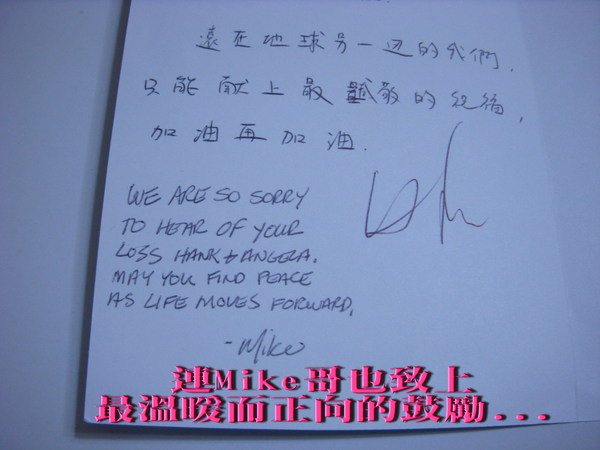 遠在地球另一边的我們,
只能献上最誠敬的祝福,
加油再加油.
WE ARE SO SORRY
TO HEAR OF YOUR
LOSS HANK & ANGELA.
MAY YOU FIND PEACE
AS LIFE MOVES FORWARD.
-Mike
連Mike哥也致上
最溫暖而正向的鼓勵...